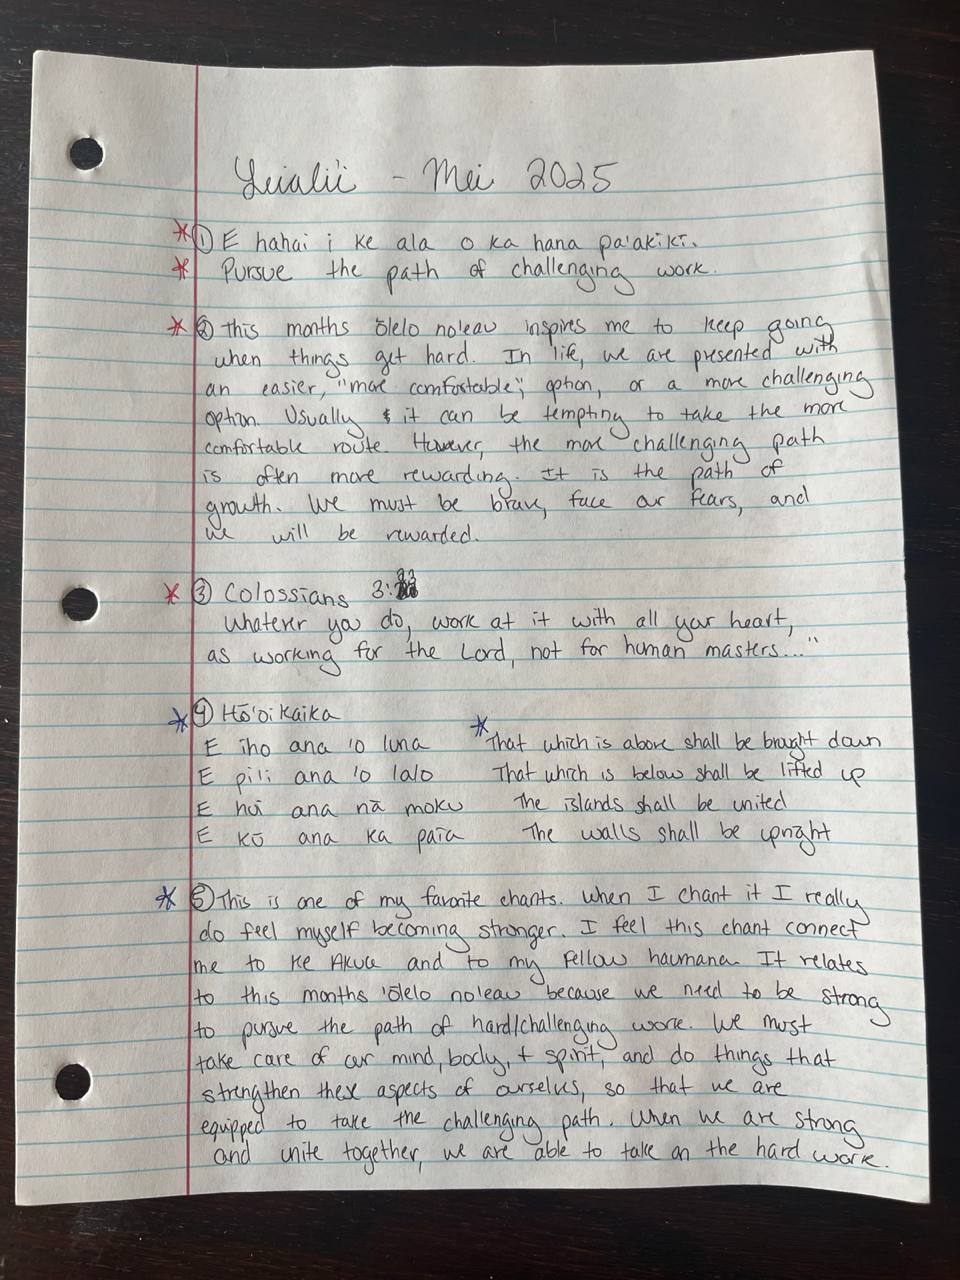 Leialii - Mei 2025
* ① E hahai i ke ala o ka hana pa'akikī.
* Pursue the path of challenging work.
* ② This months ōlelo no'eau inspires me to keep going
when things get hard. In life, we are presented with
an easier, "more comfortable", option, or a more challenging
option. Usually & it can be tempting to take the more
comfortable route. However, the more challenging path
is often more rewarding. It is the path of
growth. We must be brave, face our fears, and
we will be rewarded.
* ③ Colossians 3:23
Whatever you do, work at it with all your heart,
as working for the Lord, not for human masters..."
* ④ Hō'oikaika
E iho ana 'o luna
E pi'i ana 'o lalo
E hui ana nā moku
E kū ana ka paia
* That which is above shall be brought down
That which is below shall be lifted up
The islands shall be united
The walls shall be upright
* ⑤ This is one of my favorite chants. When I chant it I really
do feel myself becoming stronger. I feel this chant connect
me to ke Akua and to my fellow haumana. It relates
to this months 'ōlelo no'eau because we need to be strong
to pursue the path of hard/challenging work. We must
take care of our mind, body, + spirit, and do things that
strengthen these aspects of ourselves, so that we are
equipped to take the challenging path. When we are strong
and unite together, we are able to take on the hard work.